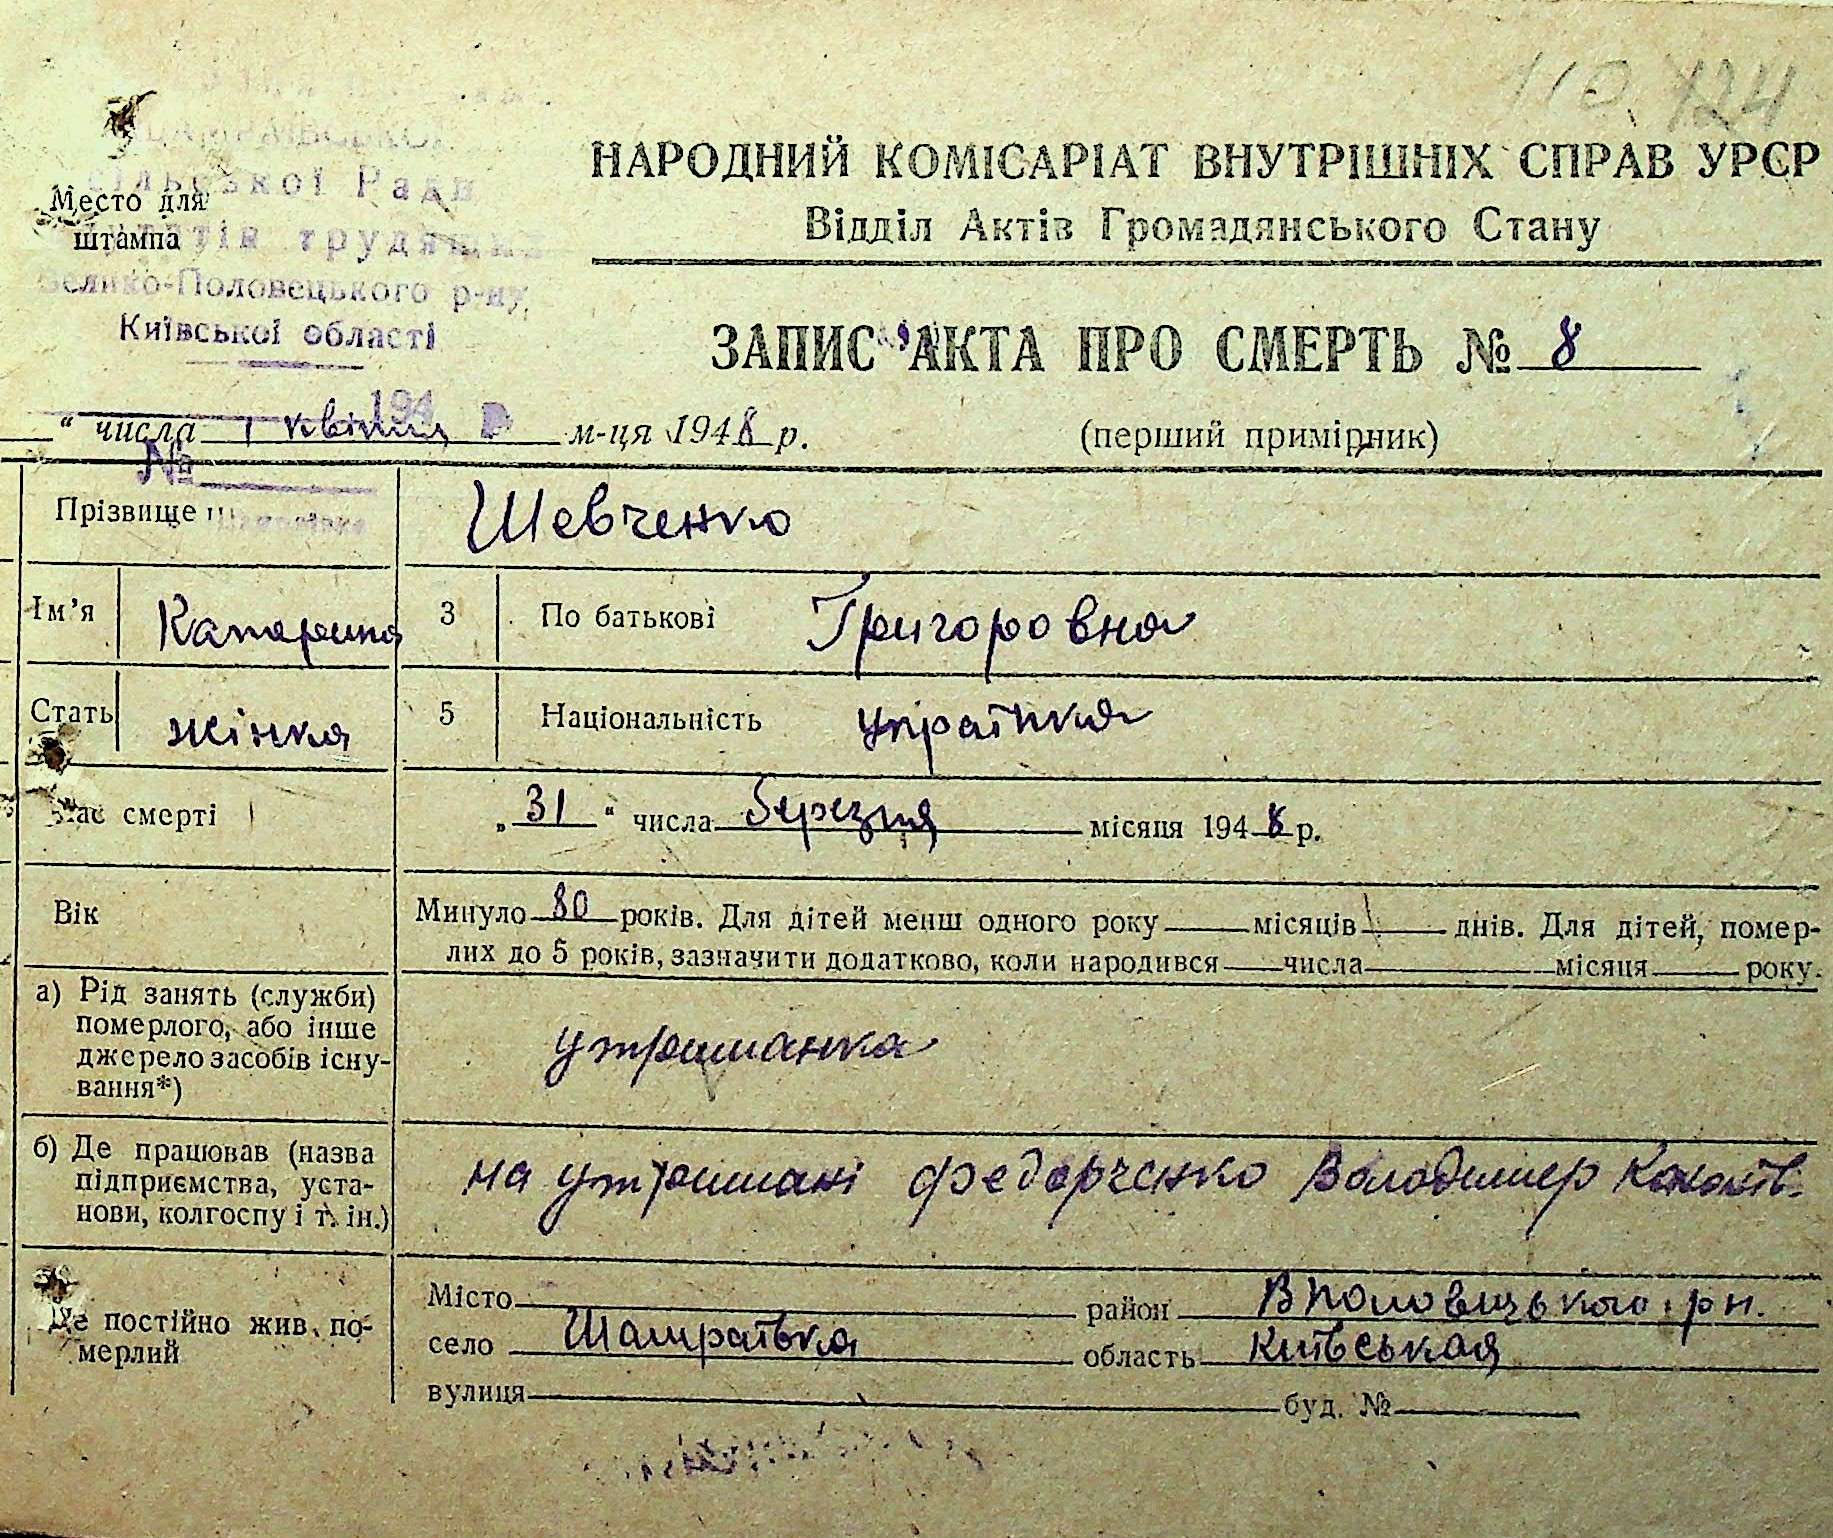 110 124
сільської Ради
Место для
штампа
трудящих
Велико-Половецького р-ну,
Київської області
194
№
НАРОДНИЙ КОМІСАРІАТ ВНУТРІШНІХ СПРАВ УРСР
Відділ Актів Громадянського Стану
ЗАПИС АКТА ПРО СМЕРТЬ № 8
“ числа 1 квітня м-ця 1948 р.
(перший примірник)
Прізвище Шевченко
Ім’я Катерина 3 По батькові Григоровна
Стать жінка 5 Національність українка
Час смерті „31“ числа березня місяця 1948 р.
Вік Минуло 80 років. Для дітей менш одного року місяців днів. Для дітей, помер-
лих до 5 років, зазначити додатково, коли народився числа місяця року.
а) Рід занять (служби)
померлого, або інше
джерело засобів існу-
вання*)
утриманка
б) Де працював (назва
підприємства, уста-
нови, колгоспу і т. ін.)
на утримані Федорченко Володимер
Де постійно жив по-
мерлий
Місто район В Половецького р н.
село Шамраївка область Київськая
вулиця буд. №